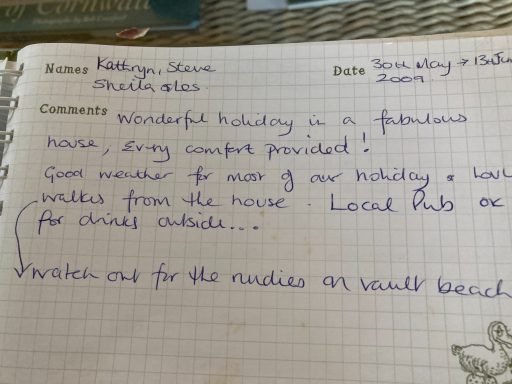 of Cornwall
Names Kathryn, Steve
Sheila & Les.
Date 30th May → 13th Jun
2009
Comments Wonderful holiday in a fabulous
house, Every comfort provided!
Good weather for most of our holiday &
walks from the house. Local Pub OK
for drinks outside...
watch out for the nudies on vault beach